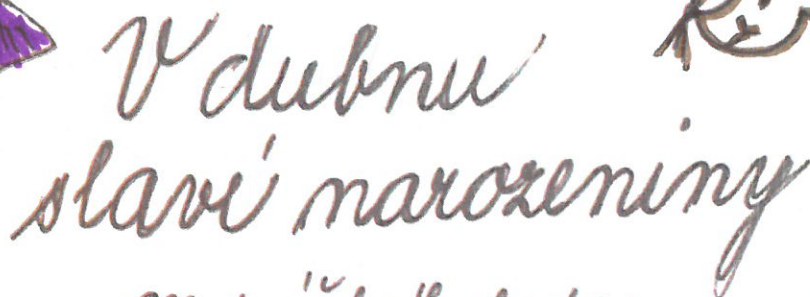 V dubnu
slaví narozeniny